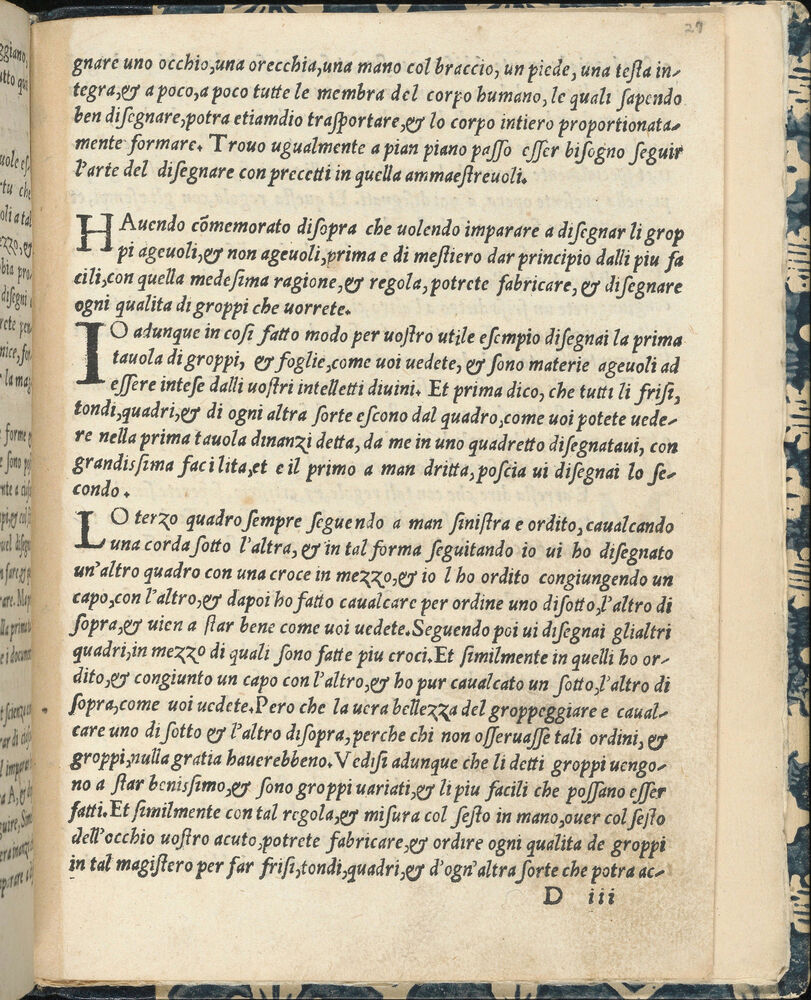 27
gnare uno occhio,una orecchia,una mano col braccio, un piede, una teſta in-
tegra,& a poco,a poco tutte le membra del corpo humano, le quali ſapendo
ben diſegnare,potra etiamdio traſportare,& lo corpo intiero proportionata-
mente formare. Trouo ugualmente a pian piano paſſo eſſer biſogno ſeguir
l'arte del diſegnare con precetti in quella ammaeſtreuoli.
HAuendo cõmemorato diſopra che uolendo imparare a diſegnar li grop
pi ageuoli,& non ageuoli,prima e di meſtiero dar principio dalli piu fa
cili,con quella medeſima ragione,& regola, potrete fabricare, & diſegnare
ogni qualita di groppi che uorrete.
IO adunque in coſi fatto modo per uoſtro utile eſempio diſegnai la prima
tauola di groppi, & foglie,come uoi uedete, & ſono materie ageuoli ad
eſſere inteſe dalli uoſtri intelletti diuini. Et prima dico, che tutti li friſi,
tondi,quadri,& di ogni altra ſorte eſcono dal quadro,come uoi potete uede-
re nella prima tauola dinanzi detta, da me in uno quadretto diſegnataui, con
grandisſima facilita,et e il primo a man dritta, poſcia ui diſegnai lo ſe-
condo.
LO terzo quadro ſempre ſeguendo a man ſiniſtra e ordito, caualcando
una corda ſotto l'altra, & in tal forma ſeguitando io ui ho diſegnato
un'altro quadro con una croce in mezzo,& io l ho ordito congiungendo un
capo,con l'altro,& dapoi ho fatto caualcare per ordine uno diſotto,l'altro di
ſopra,& uien a ſtar bene come uoi uedete.Seguendo poi ui diſegnai glialtri
quadri,in mezzo di quali ſono fatte piu croci.Et ſimilmente in quelli ho or-
dito,& congiunto un capo con l'altro,& ho pur caualcato un ſotto,l'altro di
ſopra,come uoi uedete.Pero che la uera bellezza del groppeggiare e caual-
care uno di ſotto & l'altro diſopra, perche chi non oſſeruaſſe tali ordini, &
groppi,nulla gratia hauerebbeno.Vediſi adunque che li detti groppi uengo-
no a ſtar beniſſimo,& ſono groppi uariati,& li piu facili che poſſano eſſer
fatti.Et ſimilmente con tal regola,& miſura col ſeſto in mano,ouer col ſeſto
dell'occhio uoſtro acuto,potrete fabricare,& ordire ogni qualita de groppi
in tal magiſtero per far friſi,tondi,quadri,& d'ogn'altra ſorte che potra ac-
D iii